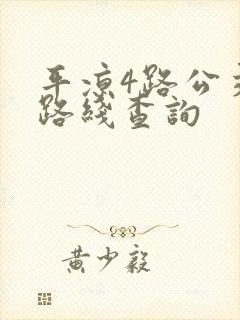 平凉4路公交
路线查询
黄少毅